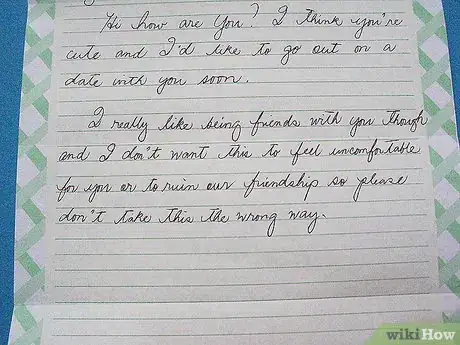 Hi how are You? I think you're
cute and I'd like to go out on a
date with you soon.
I really like being friends with you though
and I don't want this to feel uncomfortable
for you or to ruin our friendship so please
don't take this the wrong way.
wikiHow